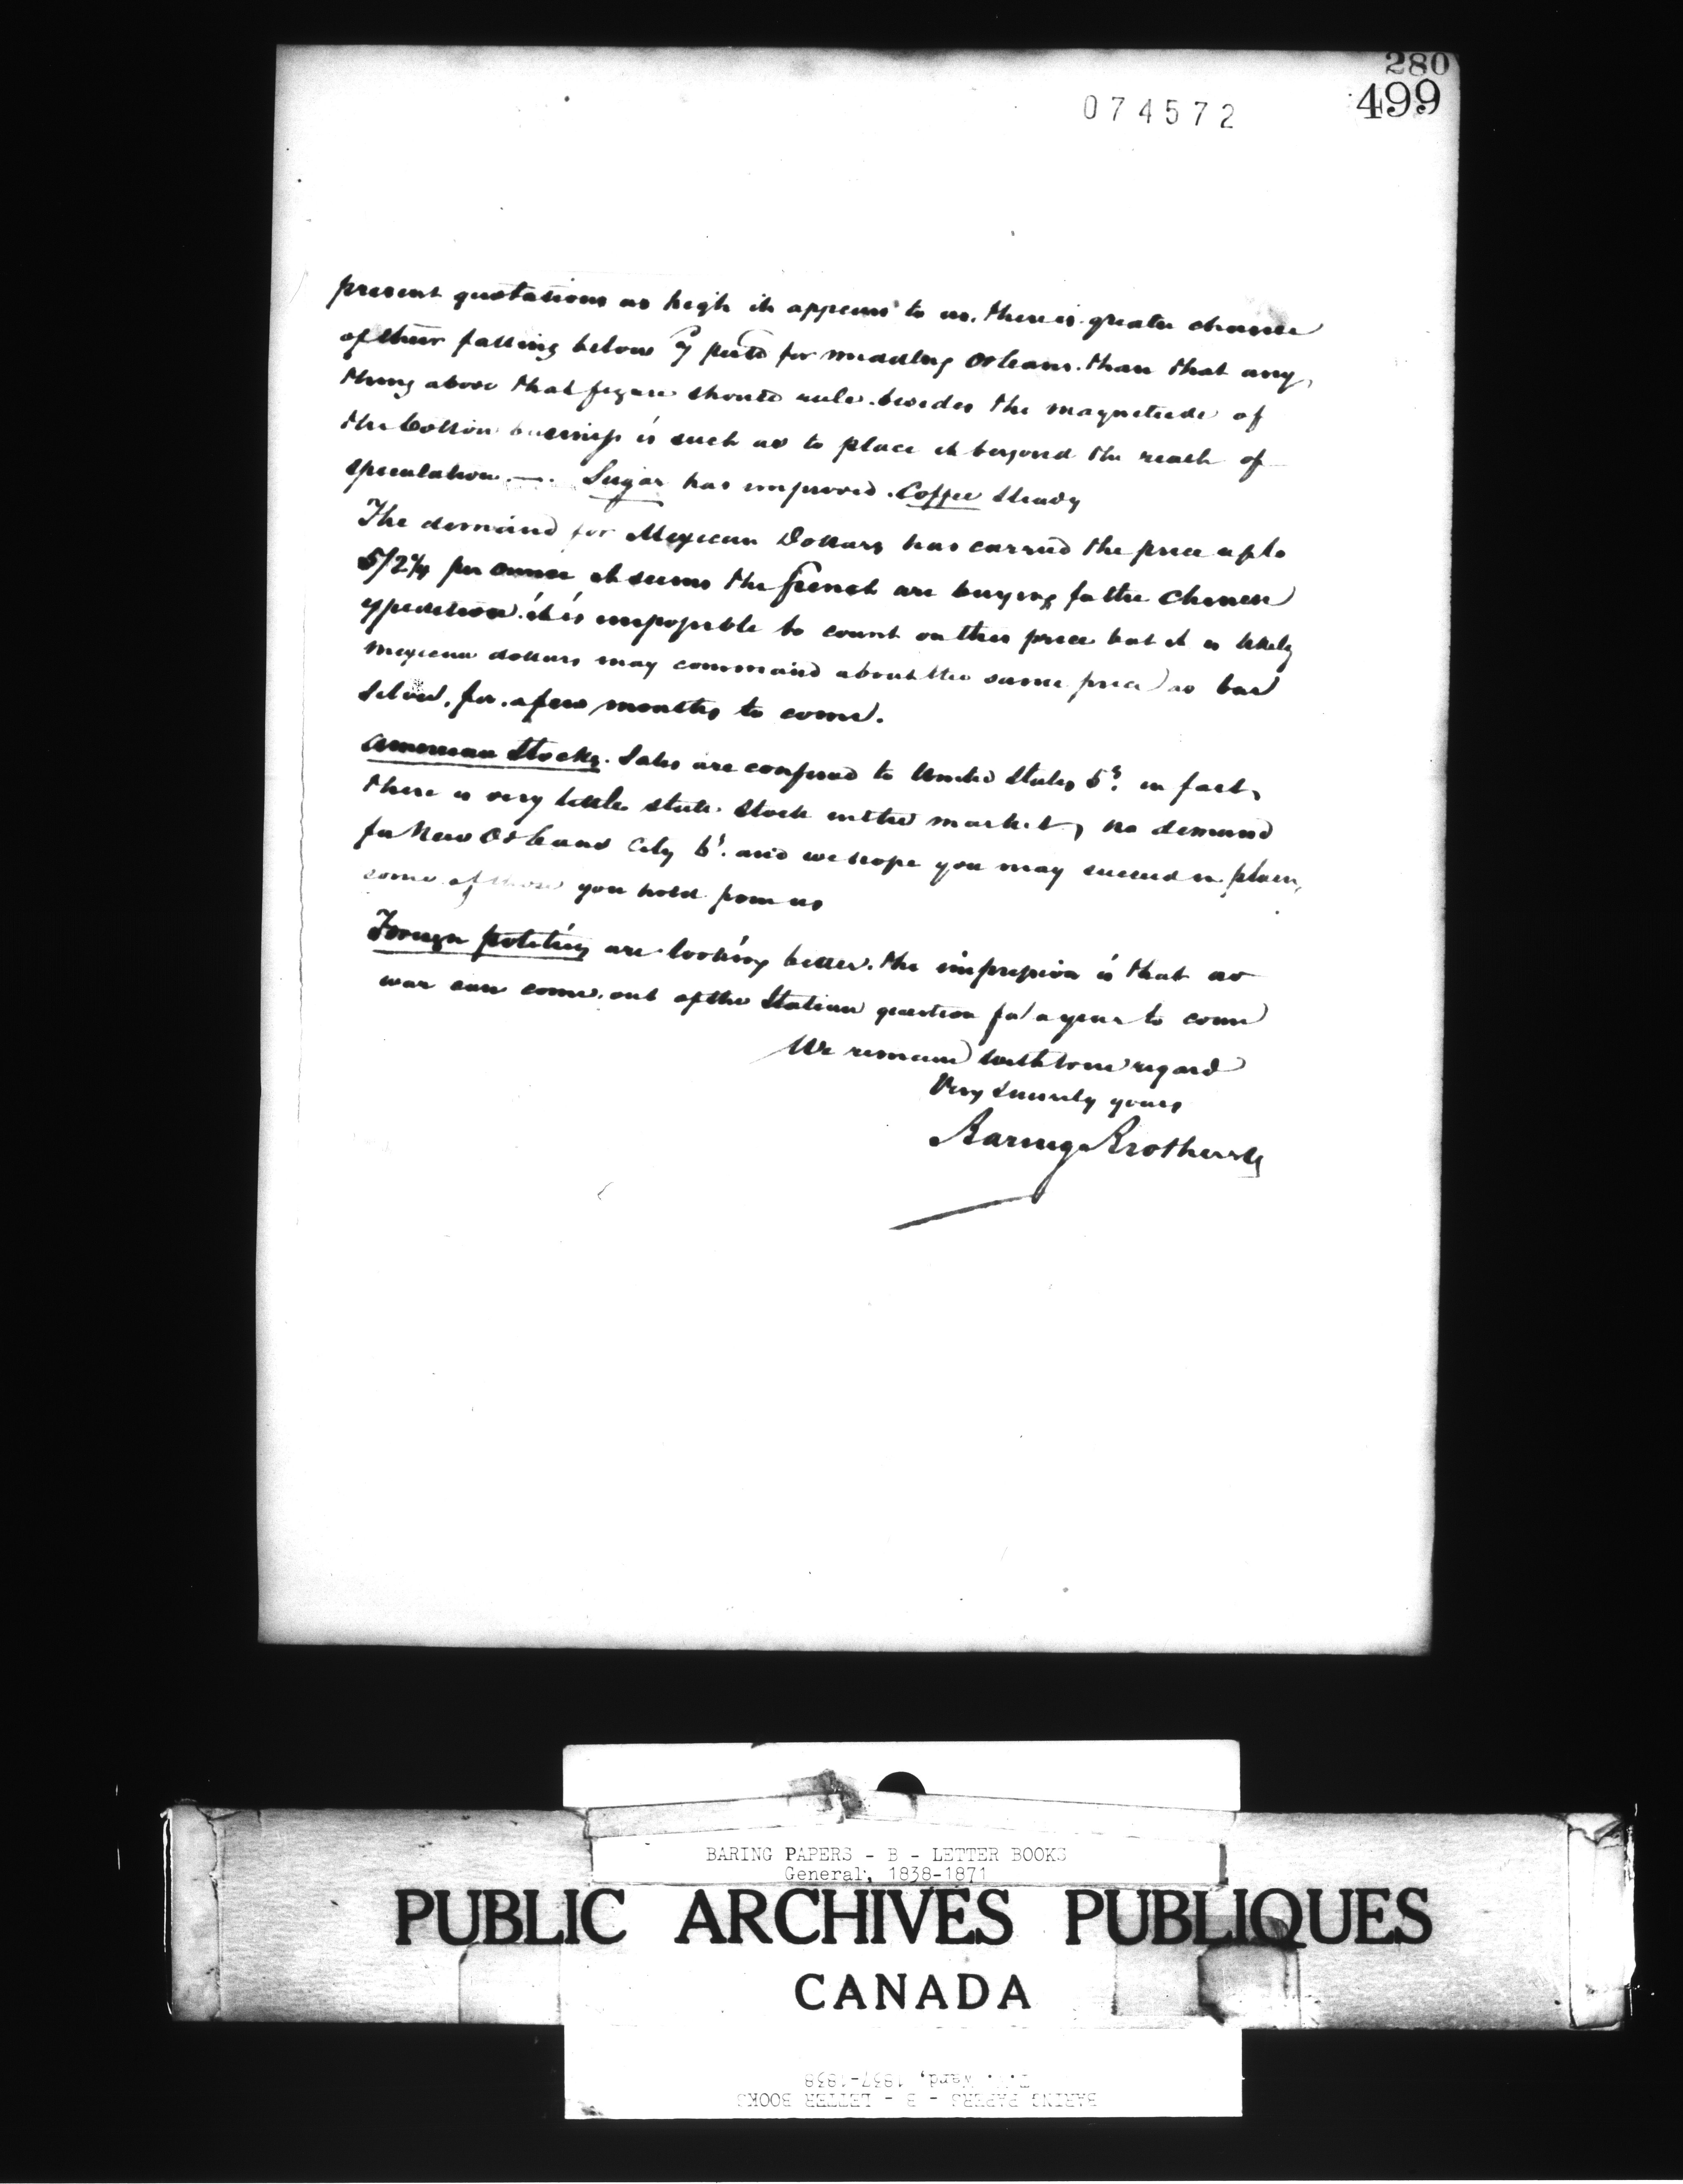 280
499
074572
present quotations as high it appears to us. there is greater chance
of their falling below 7 for middling Orleans. than that any,
thing above that figure should rule. besides the magnitude of
the Cotton business is such as to place it beyond the reach of
speculation. —. Sugar has improved. Coffee steady
The demand for Mexican Dollars has carried the price up to
5/2¼ per ounce it seems the french are buying for the Chinese
xpedition. it is impossible to count on this price but it is likely
mexican dollars may command about the same price as bar
Silver. for. a few months to come.
American Stocks. Sales are confined to United States 5s. in fact,
there is very little state. Stock in the market, no demand
for New Orleans City 6s. and we hope you may succeed in placin,
some of those you hold from us
Foreign politics are looking better. the impression is that no
war can come. out of the Italian question for a year to come
We remain with true regard
Very sincerely yours
Baring Brothers & Co
BARING PAPERS - B - LETTER BOOKS
General, 1838-1871
PUBLIC ARCHIVES PUBLIQUES
CANADA
T.W. Ward, 1837-1838
BARING PAPERS - B - LETTER BOOKS